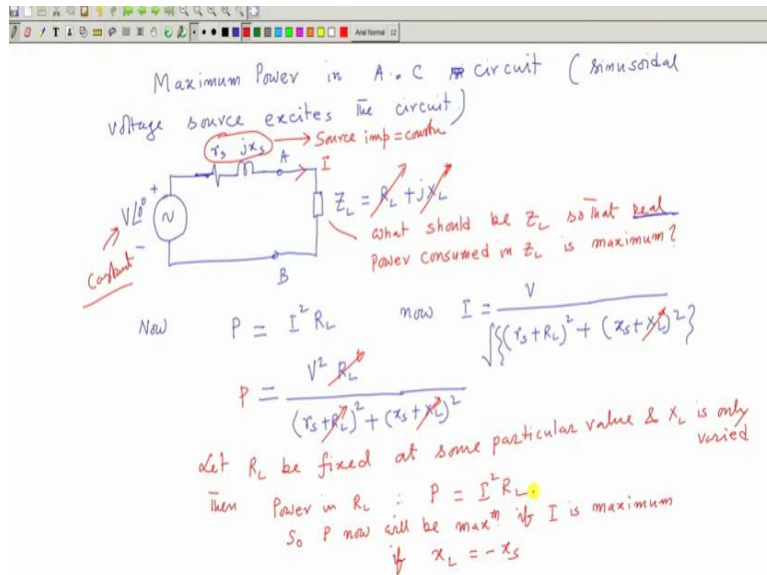 Arial Normal 12
Maximum Power in A.C circuit (sinusoidal
voltage source excites the circuit)
rs jxs → Source imp = constn
A I
V∠0° + ~ −
ZL = RL + jXL
Constant
What should be ZL so that real
Power consumed in ZL is maximum?
B
Now P = I² RL now I = V / √{(rs + RL)² + (xs + XL)²}
P = V² RL / (rs + RL)² + (xs + XL)²
Let RL be fixed at some particular value & XL is only
varied
Then Power in RL : P = I² RL.
So P now will be maxm if I is maximum
if xL = −xs